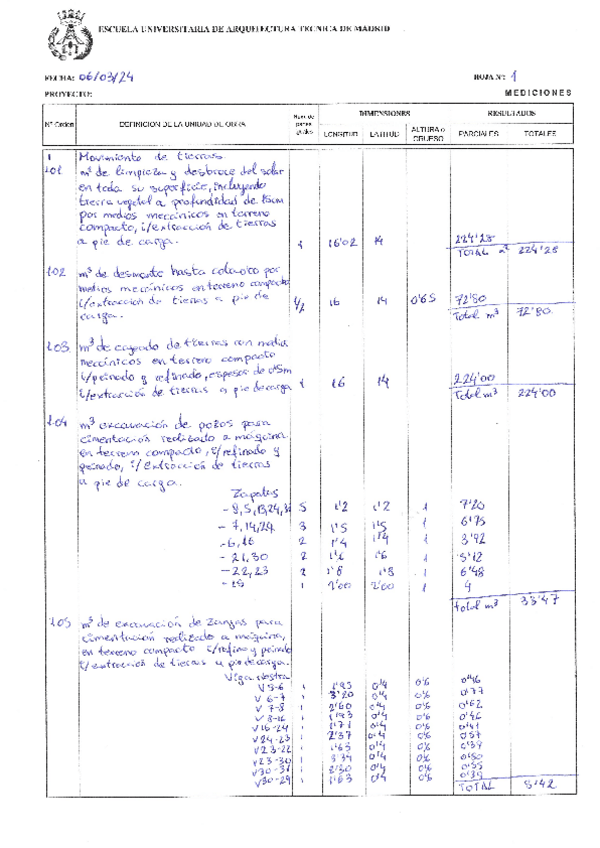 ESCUELA UNIVERSITARIA DE ARQUITECTURA TECNICA DE MADRID
FECHA: 06/03/24 HOJA Nº: 1
PROYECTO: MEDICIONES
Nº Orden DEFINICION DE LA UNIDAD DE OBRA Num de partes iguales DIMENSIONES RESULTADOS
LONGITUD LATITUD ALTURA o GRUESO PARCIALES TOTALES
1 Movimiento de tierras
1.01 m² de limpieza y desbroce del solar
en toda su superficie, incluyendo
tierra vegetal a profundidad de 15cm
por medios mecánicos en terreno
compacto, i/extracción de tierras
a pie de carga. 1 16'02 14 224'28
TOTAL m² 224'28
1.02 m³ de desmonte hasta cota por
medios mecánicos en terreno compacto
i/extracción de tierras a pie de
carga. 1/2 16 14 0'65 72'80
Total m³ 72'80
1.03 m³ de cajeado de tierras con medios
mecánicos en terreno compacto
i/peinado y refinado, espesor de 0'5m
i/extracción de tierras a pie de carga 1 16 14 224'00
Total m³ 224'00
1.04 m³ excavación de pozos para
cimentación realizado a máquina
en terreno compacto, i/refinado y
peinado, i/ Extracción de tierras
a pie de carga.
Zapatas
5 1'2 1'2 1 7'20
- 7,14,24 3 1'5 1'5 1 6'75
- 6,16 2 1'4 1'4 1 3'92
- 21,30 2 1'6 1'6 1 5'12
- 22,23 2 1'8 1'8 1 6'48
- 15 1 2'00 2'00 1 4
Total m³ 33'47
1.05 m³ de excavación de zanjas para
cimentación realizado a máquina,
en terreno compacto i/refino y peinado
i/extracción de tierras a pie de carga.
Viga riostra
V 5-6 1 1'93 0'4 0'6 0'46
V 6-7 1 3'20 0'4 0'6 0'77
V 7-8 1 2'60 0'4 0'6 0'62
V 8-16 1 1'93 0'4 0'6 0'46
V 16-24 1 1'71 0'4 0'6 0'41
V 24-23 1 2'37 0'4 0'6 0'57
V 23-22 1 1'63 0'4 0'6 0'39
V 23-30 1 0'4 0'6
V 30-31 1 2'30 0'4 0'6 0'55
V 30-29 1 1'63 0'4 0'6 0'39
TOTAL 5'42